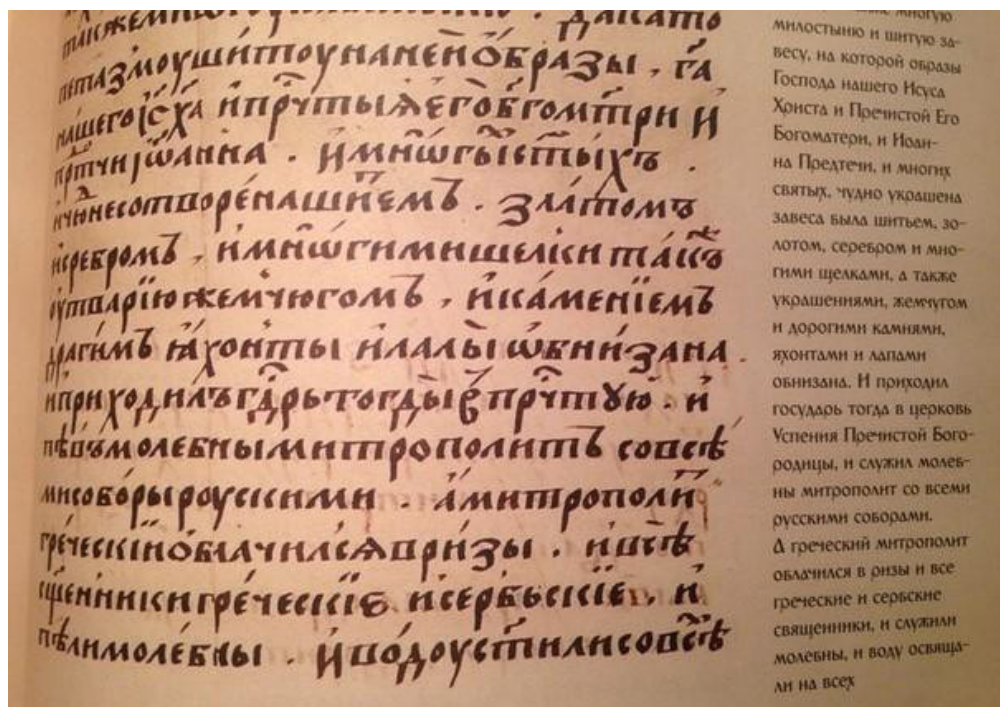 петазмоушитоунаненѡ́бразы . га҃
нашегоіс҃ха҃ ипрⷱ҇тыѧегѡ҆бг҃омт҃ри и҆
прⷣтчиіѡ҆анна . и҆мнѡгыⷯст҃ыхъ .
исребромъ , и҆мнѡгимищелки такоⷤ
оутварїюжемчюгомъ , и҆ка́менїемъ
драги́мъ ꙗ҆́хонты и҆лалы ѡ҆бни́зана .
иприходи́лъгд҇рьтогды в прⷱ҇тꙋю . и҆
пѣвъмолебнымитрополитъ совсѣ
мисобо́рыроусскими . а҆митрополи́т
гре́ческїиѡ҆блачилсѧври́зы . и҆всѣ
сщ҃е́нникигре́ческїе исе́рбьскїе . и҆
пѣлимоле́бны . и҆во́доуст҃илисовсѣ
милостыню и шитую за-
весу, на которой образы
Господа нашего Исуса
Христа и Пречистой Его
Богоматери, и Иоан-
на Предтечи, и многих
святых, чудно украшена
завеса была шитьем, зо-
лотом, серебром и мно-
гими щелками, а также
украшениями, жемчугом
и дорогими камнями,
яхонтами и лапами
обнизана. И приходил
государь тогда в церковь
Успения Пречистой Бого-
родицы, и служил молеб-
ны митрополит со всеми
русскими соборами.
А греческий митрополит
облачился в ризы и все
греческие и сербские
священники, и служили
молебны, и воду освяща-
ли на всех